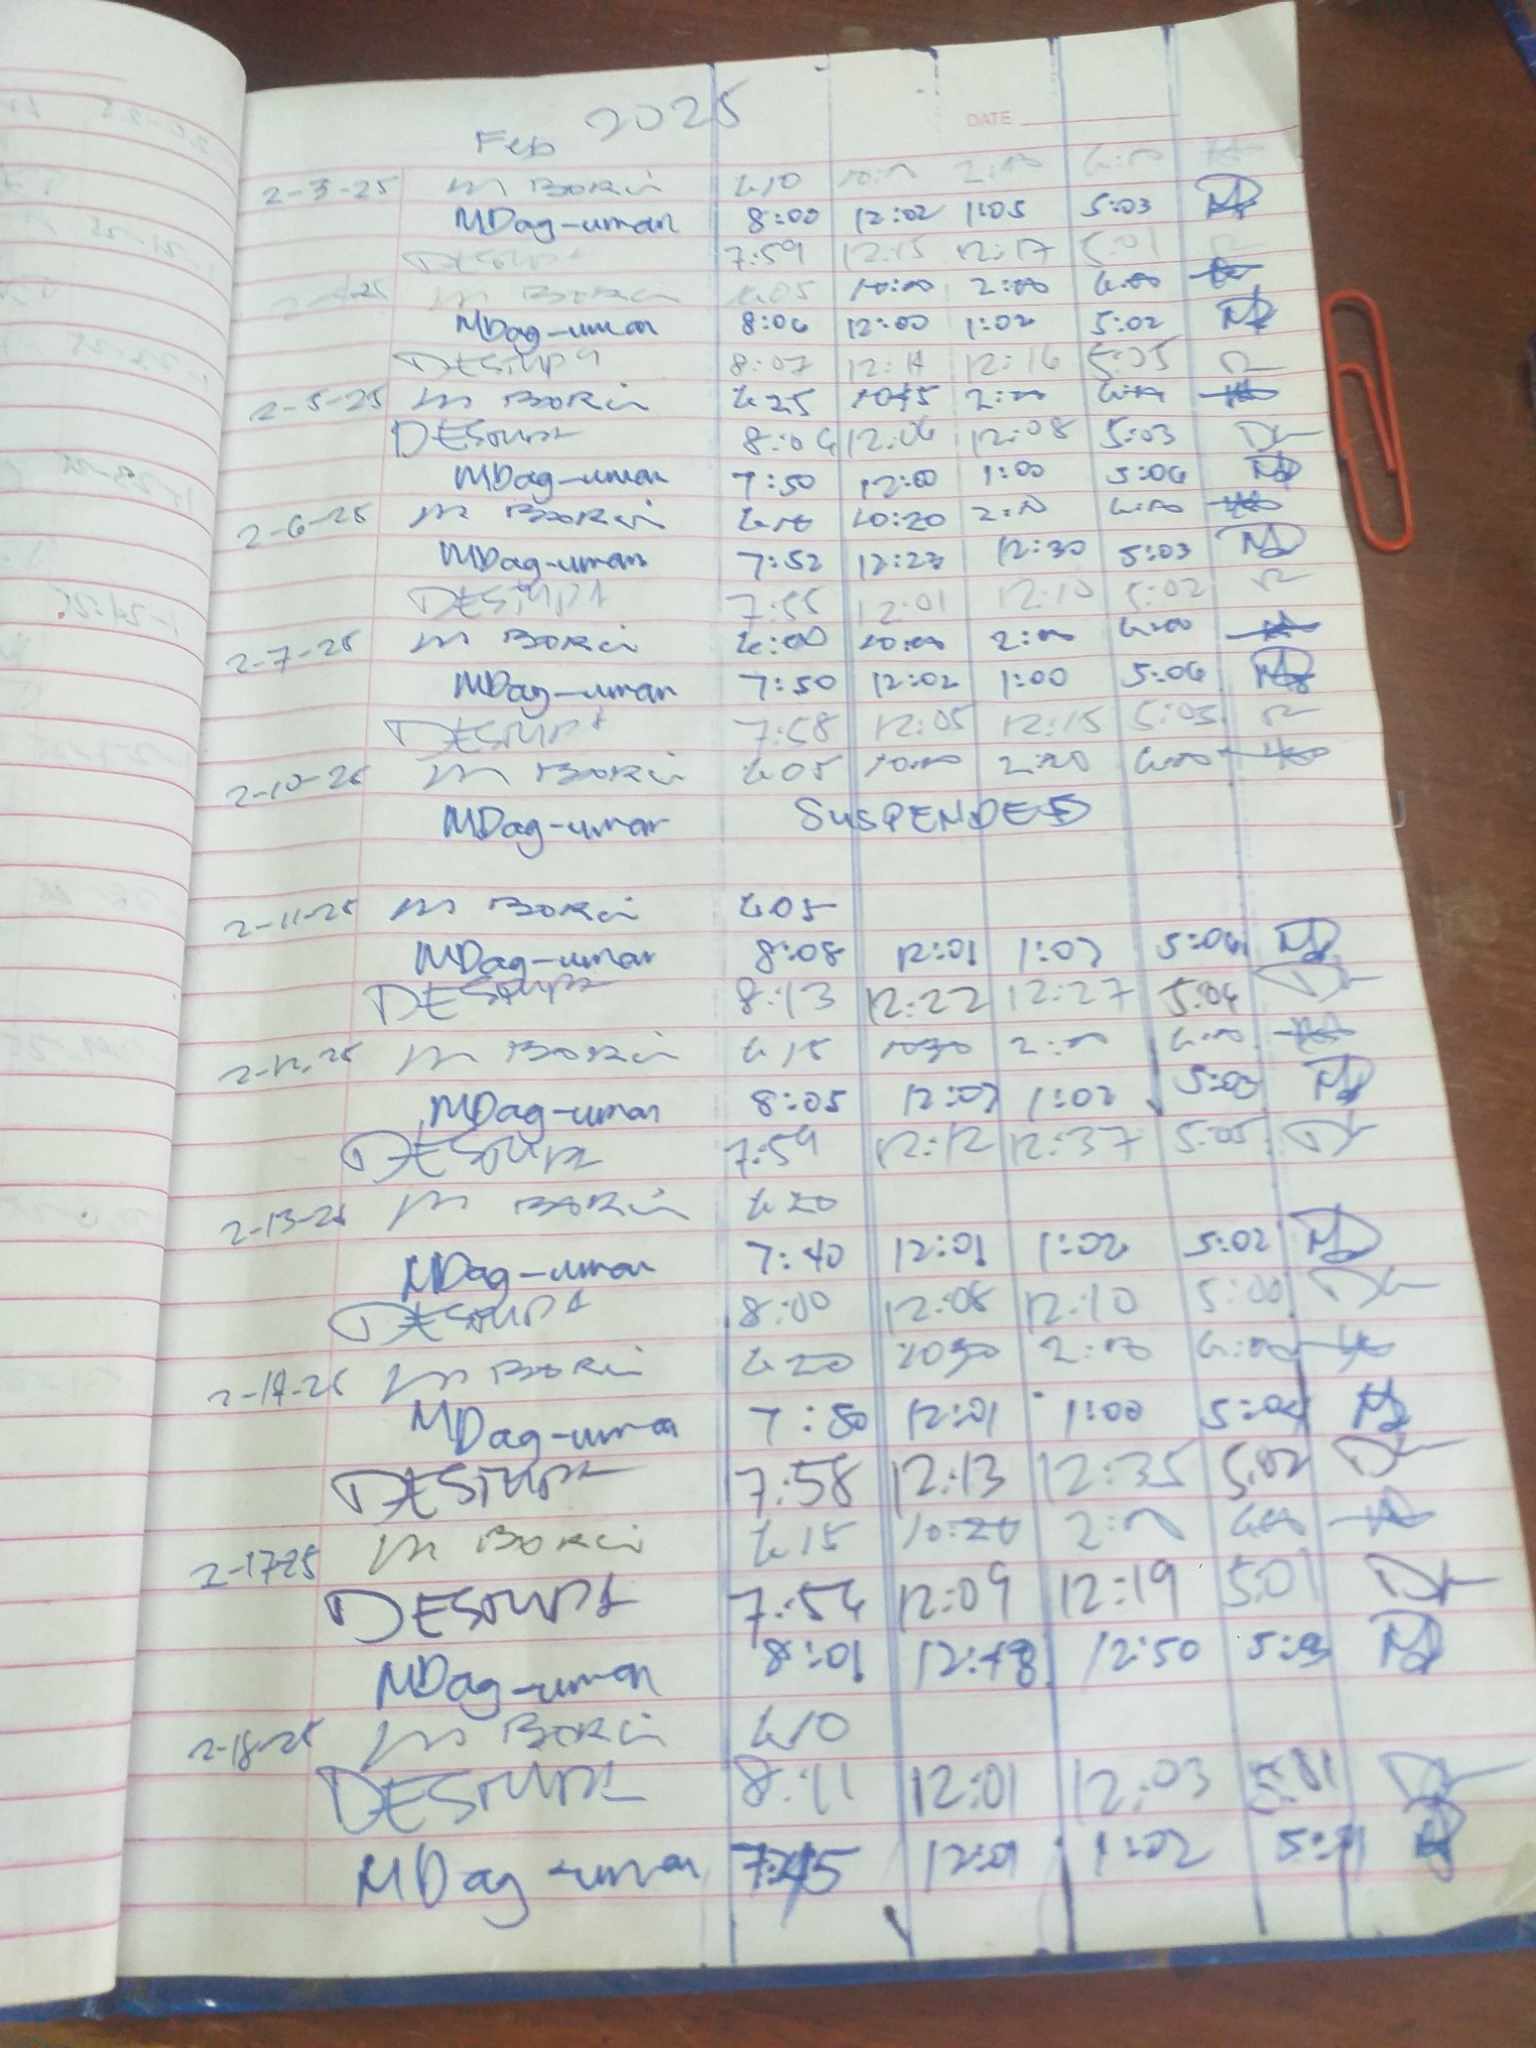 Feb 2025
DATE
2-3-25 M Borci 6:10 10:00 2:00 6:00
MDag-uman 8:00 12:02 1:05 5:03
DESTUPA 7:59 12:15 12:17 5:01
M Borci 6:05 10:00 2:00 6:00
MDag-uman 8:06 12:00 1:02 5:02
DESTUPA 8:07 12:14 12:16 5:05
2-5-25 M Borci 6:25 10:15 2:00 6:00
DESTUPA 8:04 12:06 12:08 5:03
MDag-uman 7:50 12:00 1:00 5:06
2-6-25 M Borci 6:10 10:20 2:00 6:00
MDag-uman 7:52 12:27 12:30 5:03
DESTUPA 7:55 12:01 12:10 5:02
2-7-25 M Borci 6:00 10:00 2:00 6:00
MDag-uman 7:50 12:02 1:00 5:06
DESTUPA 7:58 12:05 12:15 5:03
2-10-25 M Borci 6:05 10:00 2:00 6:00
MDag-uman SUSPENDED
2-11-25 M Borci 6:05
MDag-uman 8:08 12:01 1:02 5:04
DESTUPA 8:13 12:22 12:27 5:04
2-12-25 M Borci 6:15 1030 2:00 6:00
MDag-uman 8:05 12:02 1:02 5:03
DESTUPA 7:59 12:12 12:37 5:05
2-13-25 M Borci 6:20
MDag-uman 7:40 12:01 1:02 5:02
DESTUPA 8:00 12:08 12:10 5:00
2-14-25 M Borci 6:20 1030 2:00 6:00
MDag-uman 7:50 12:01 1:00 5:04
DESTUPA 7:58 12:13 12:35 5:02
2-17-25 M Borci 6:15 10:20 2:00 6:00
DESTUPA 7:54 12:09 12:19 5:01
MDag-uman 8:01 12:48 12:50 5:03
2-18-25 M Borci 6:10
DESTUPA 8:11 12:01 12:03 5:01
MDag-uman 7:45 12:01 1:02 5:01